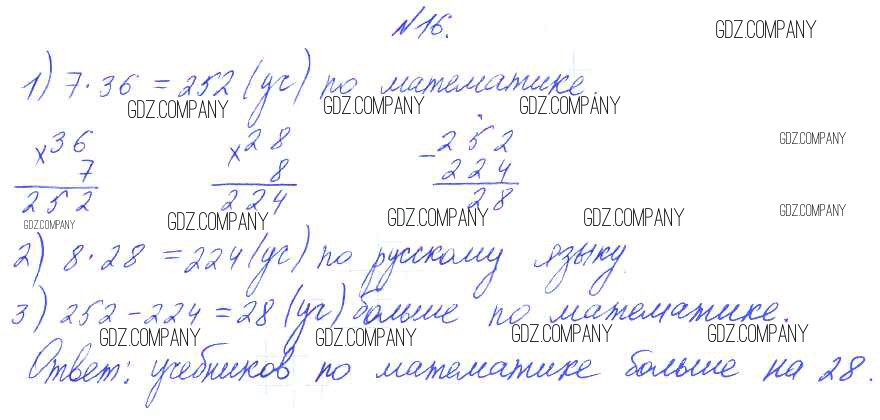 №16.
GDZ.COMPANY
1) 7·36 = 252 (уч) по математике.
GDZ.COMPANY GDZ.COMPANY GDZ.COMPANY
×36 ×28 −252
7 8 224
252 224 28
GDZ.COMPANY
GDZ.COMPANY GDZ.COMPANY GDZ.COMPANY GDZ.COMPANY GDZ.COMPANY
2) 8·28 = 224 (уч) по русскому языку.
3) 252 − 224 = 28 (уч) больше по математике.
GDZ.COMPANY GDZ.COMPANY GDZ.COMPANY GDZ.COMPANY
Ответ: учебников по математике больше на 28.